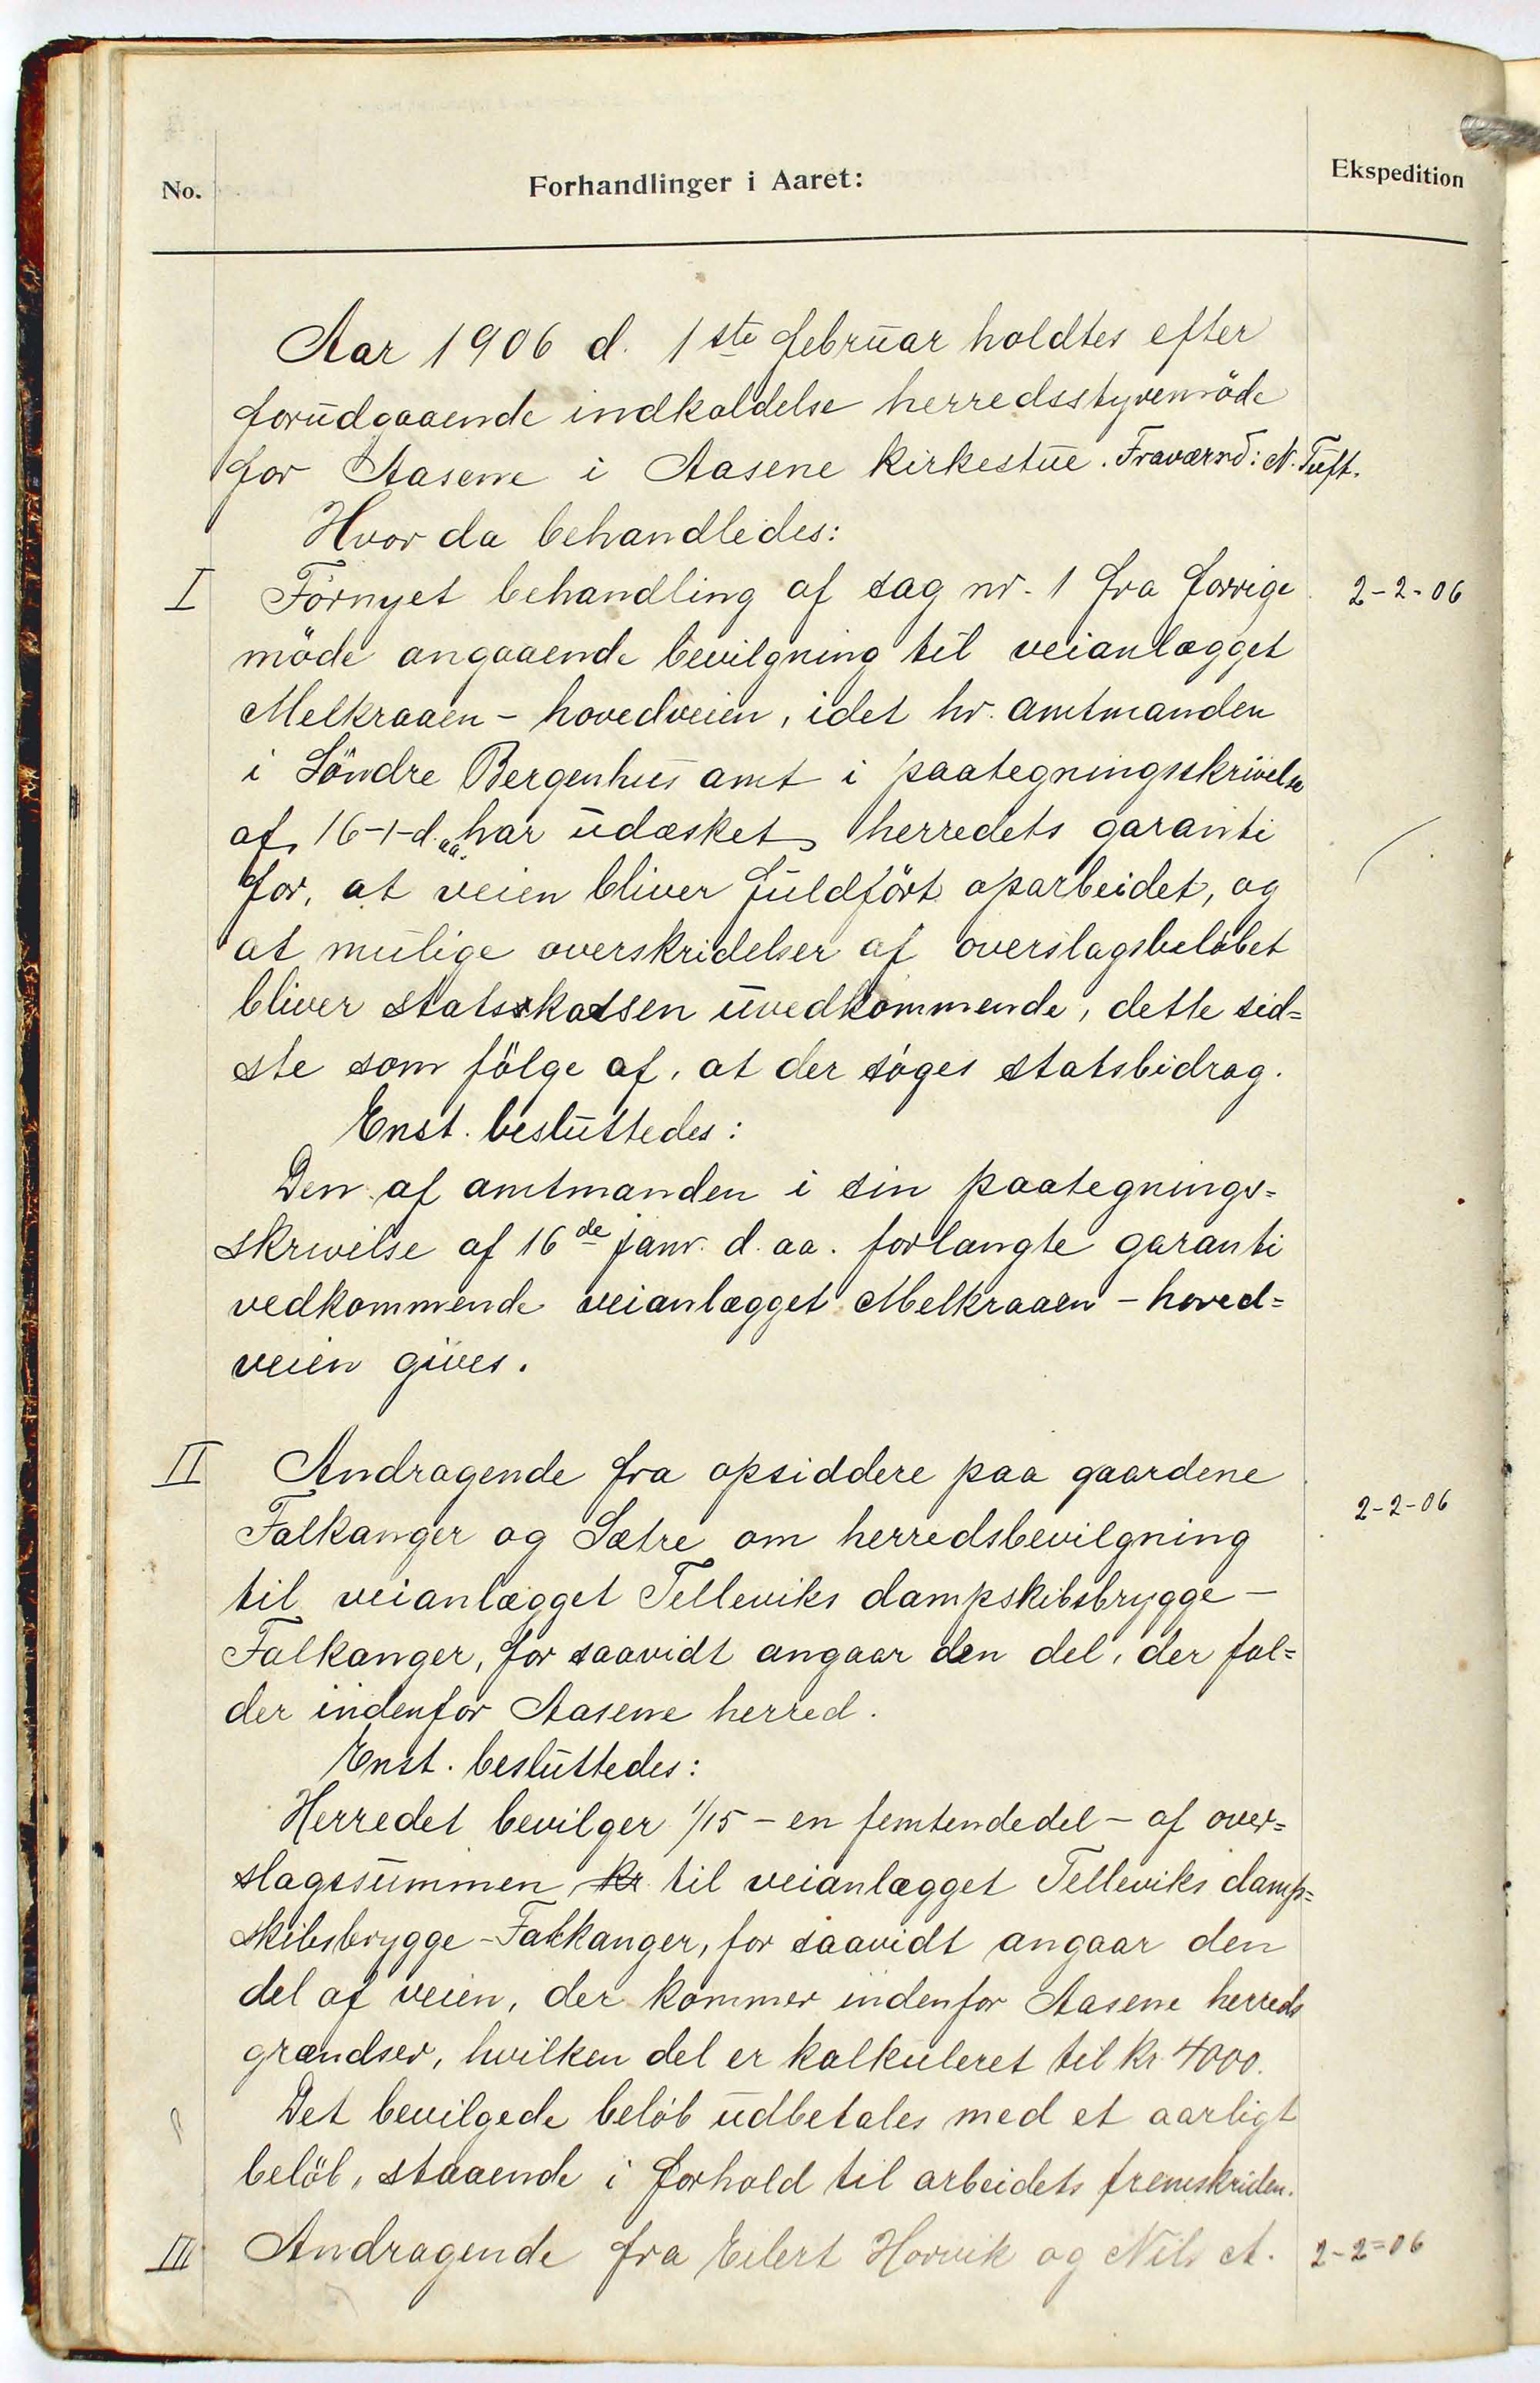 No. Forhandlinger i Aaret: Ekspedition
Aar 1906 d. 1ste februar holdtes efter
forudgaaende indkaldelse herredsstyremöde
for Aasene i Aasene kirkestue. Fraværnd: N. Tuft.
Hvor da behandledes:
I Fornyet behandling af sag nr. 1 fra forrige 2-2-06
möde angaaende bevilgning til veianlægget
Melkraaen - hovedveien, idet hr. amtmanden
i Söndre Bergenhus amt i paategningsskrivelse
af 16-1-d. aa. har udæsket herredets garanti
for, at veien bliver fuldfört oparbeidet, og
at mulige overskridelser af overslagsbelöbet
bliver statskassen uvedkommende, dette sid=
ste som fölge af, at der söges statsbidrag.
Enst. besluttedes:
Den af amtmanden i sin paategnings=
skrivelse af 16de janr. d. aa. forlangte garanti
vedkommende veianlægget Melkraaen - hoved=
veien gives.
II Andragende fra opsiddere paa gaardene
Falkanger og Sætre om herredsbevilgning 2-2-06
til veianlægget Telleviks dampskibsbrygge -
Falkanger, for saavidt angaar den del, der fal=
der indenfor Aasene herred.
Enst. besluttedes:
Herredet bevilger 1/15 - en femtendedel - af over=
slagssummen kr til veianlægget Telleviks damp=
skibsbrygge - Falkanger, for saavidt angaar den
del af veien, der kommer indenfor Aasene herreds
grændser, hvilken del er kalkuleret til kr. 4000.
Det bevilgede belöb udbetales med et aarligt
belöb, staaende i forhold til arbeidets fremskriden.
III Andragende fra Eilert Horvik og Nils A. 2-2=06